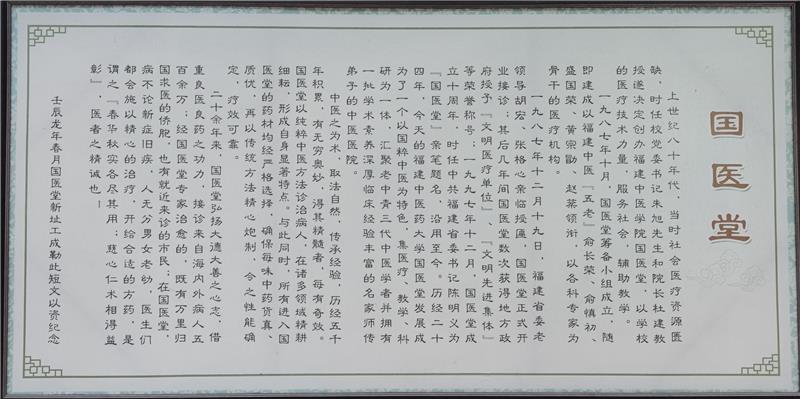 国医堂
上世纪八十年代，当时社会医疗资源匮
缺，时任校党委书记朱旭先生和院长杜建教
授遂决定创办福建中医学院国医堂，以学校
的医疗技术力量，服务社会，辅助教学。
一九八七年十月，国医堂筹备小组成立，随
即建成以福建中医“五老”俞长荣、俞慎初、
盛国荣、黄宗勖、赵棻领衔，以各科专家为
骨干的医疗机构。
一九八七年十二月十九日，福建省委老
领导胡宏、张格心亲临授匾，国医堂正式开
业接诊；其后几年间国医堂数次获得地方政
府授予『文明医疗单位』、『文明先进集体』
等荣誉称号；一九九七年十二月，国医堂成
立十周年，时任中共福建省委书记陈明义为
『国医堂』亲笔题名，沿用至今。历经二十
四年，今天的福建中医药大学国医堂发展成
为了一个以国粹中医为特色，集医疗、教学、科
研为一体，汇聚老中青三代中医学者并拥有
一批学术素养深厚临床经验丰富的名家师传
弟子的中医医院。
中医之为术，取法自然，传承经验，历经五千
年积累，有无穷奥妙，得其精髓者，每有奇效。
国医堂以纯粹中医方法诊治病人，在诸多领域精耕
细耘，形成自身显著特点。与此同时，所有进入国
医堂的药材均经严格选择，确保每味中药货真、
质优，再以传统方法精心炮制，令之性能确
定，疗效可靠。
二十余年来，国医堂弘扬大德大善之心志，借
重良医良药之功力，接诊来自海内外病人五
百余万；经国医堂专家治愈的，既有万里归
国求医的侨胞，也有就近来诊的市民；在国医堂，
病不论新症旧疾，人无分男女老幼，医生们
都会施以精心的治疗，开给合适的方药，是
谓之『春华秋实各尽其用；慈心仁术相得益
彰』，医者之精诚也—
壬辰龙年春月国医堂新址工成勒此短文以资纪念